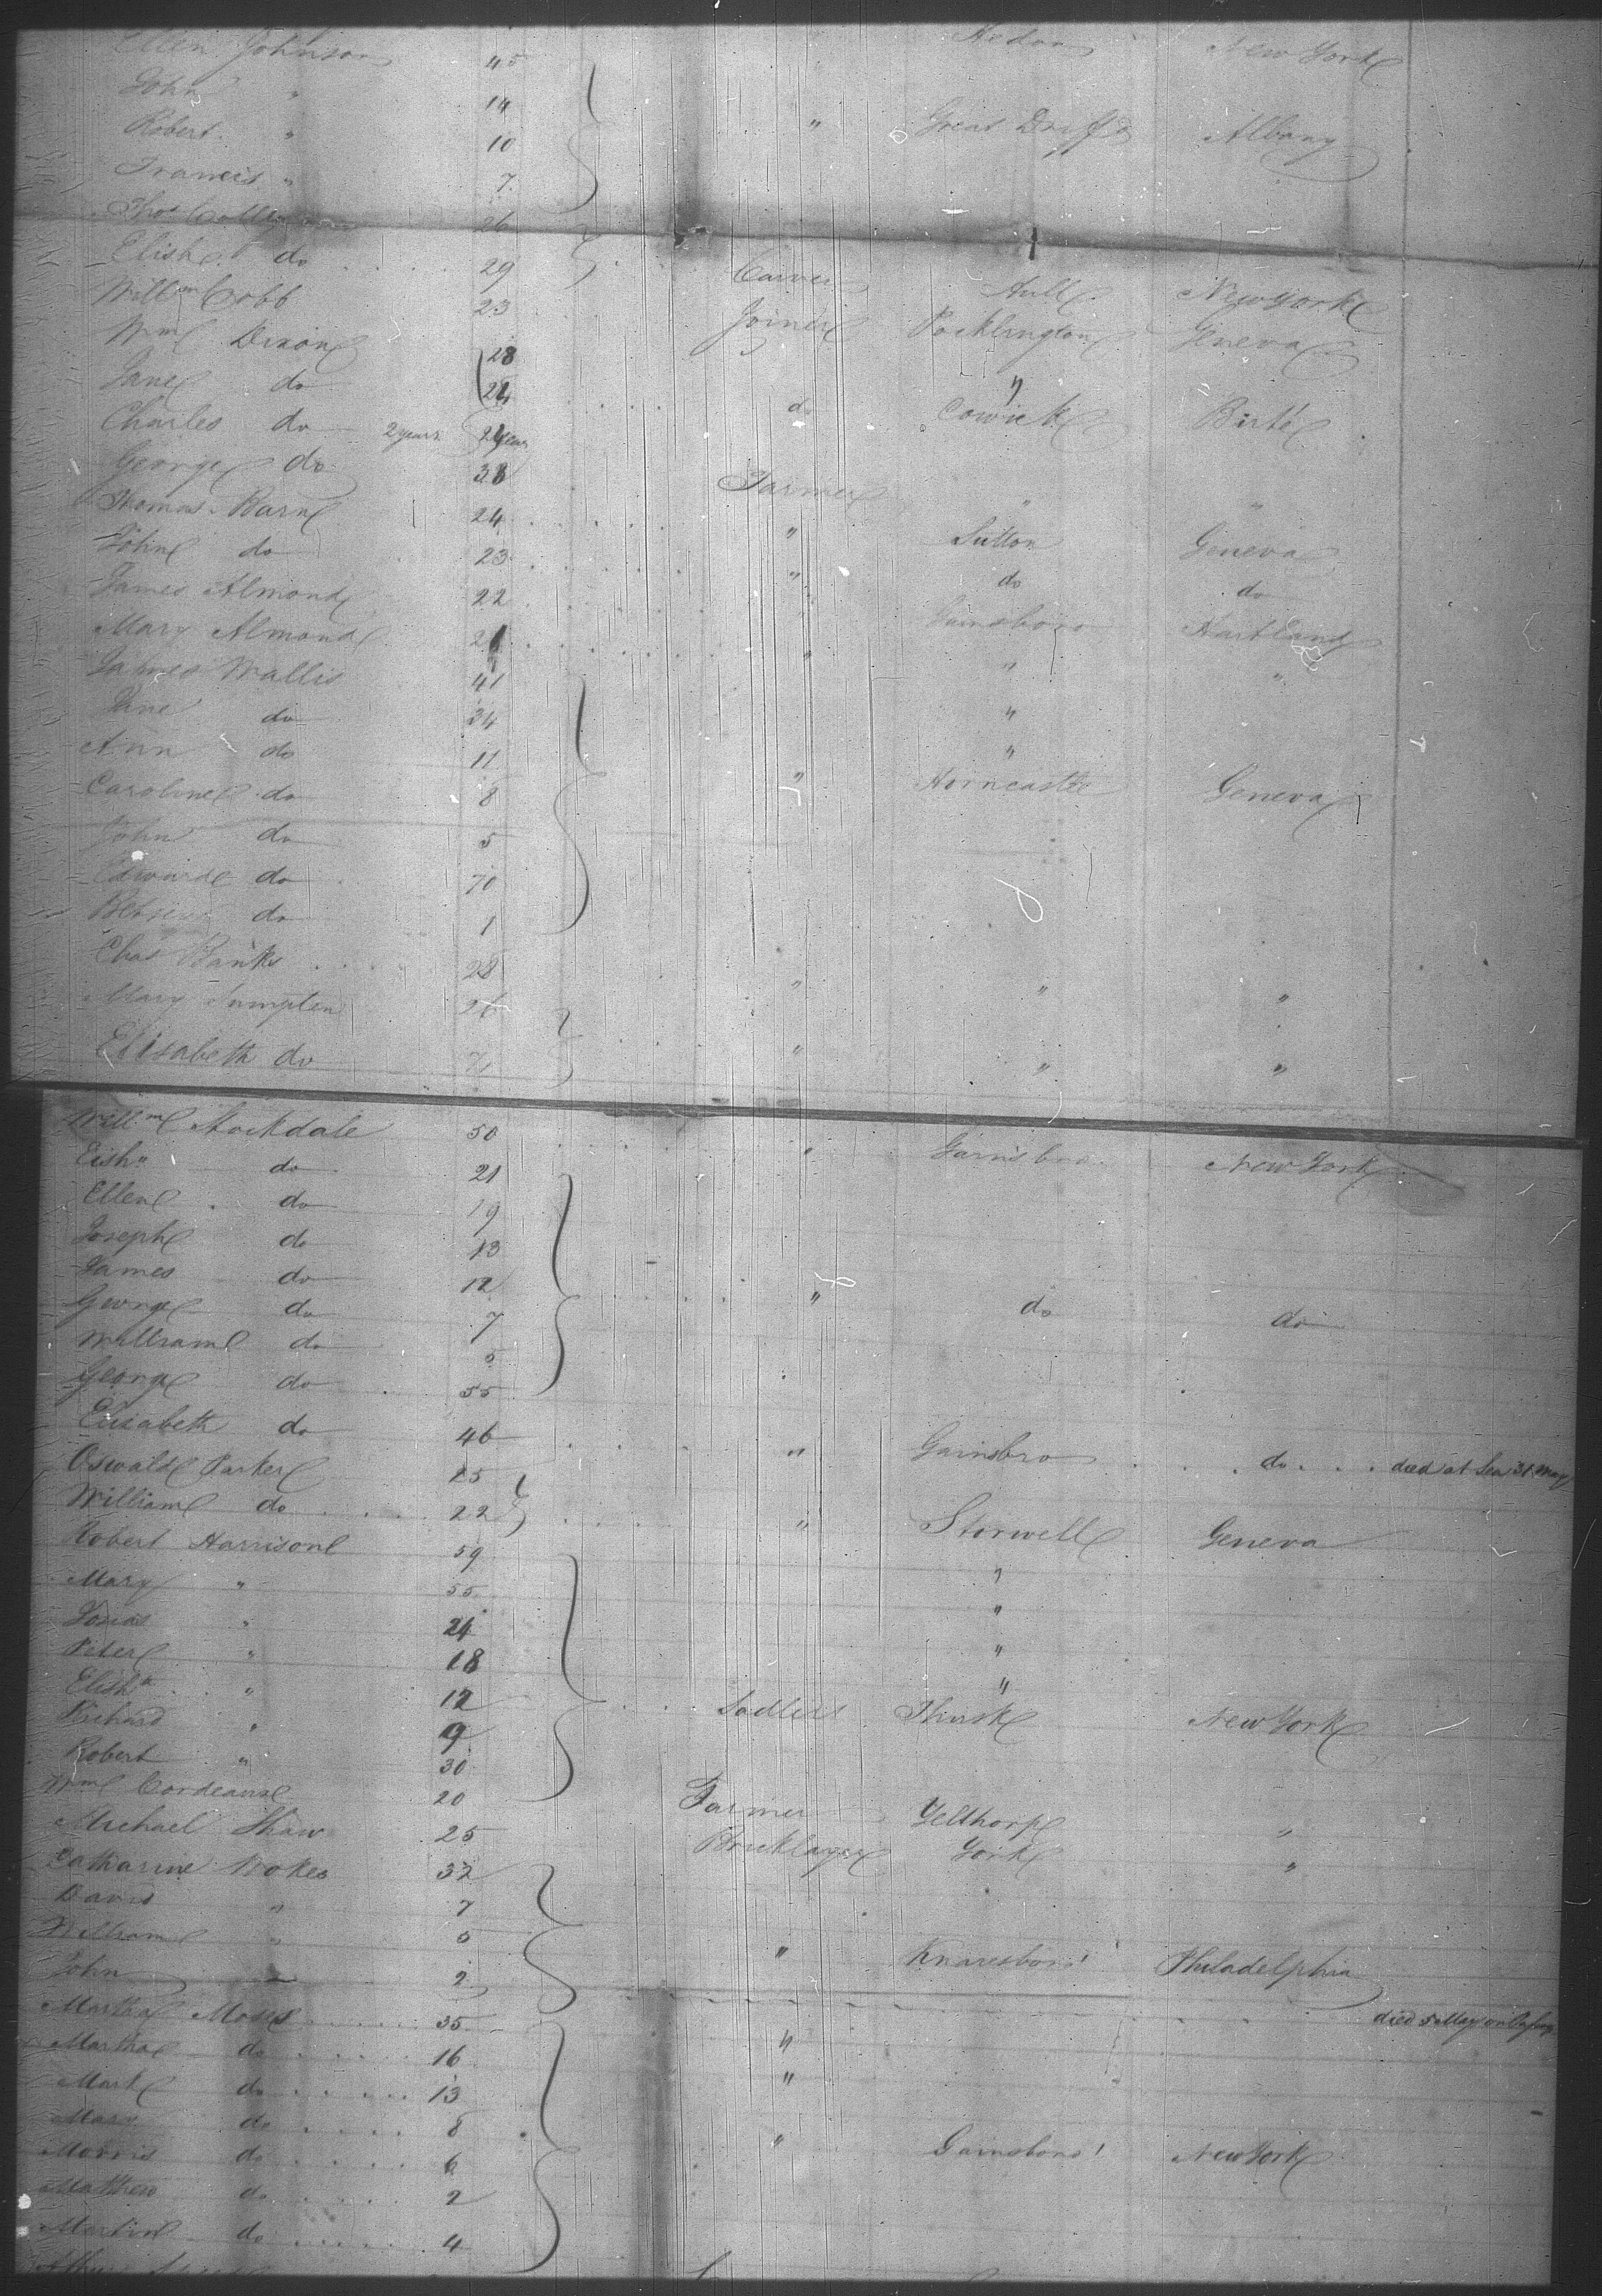 Ellen Johnson 45 Hedon New York
John " 14
Robert " 10 " Great Albany
Francis " 7
Thos 26
Elish. do 29 Carver Hull New York
Willm Cobb 23 Joiner Pocklington Geneva
Wm Dixon 28 "
Jane do 24 do Cowick
Charles do 2 years
George do 38 Farmer " "
Thomas Barn 24 " Sutton Geneva
John do 23 " do do
James Almond 22 " Gainsboro Hartland
Mary Almond 21 " " "
James Wallis 41 "
Jane do 34 "
Ann do 11
Caroline do 8 " Horncastle Geneva
John do 5
Edward do 70
do 1
Chas Banks 28 " " "
Mary Sumpten 26
Elisabeth do " " "
Willm Stockdale 50 " Gainsbro New York
Elishth do 21
Ellen do 19
Joseph do 13
James do 12
George do 7 " do do
William do 5
George do 55
Elisabeth do 46 " Gainsbro do died at Sea 31 May
Oswald Parker 25
William do 22 " Geneva
Robert Harrison 59 "
Mary " 55 "
Jonas " 24 "
Peter " 18 "
Elishth " 12 Sadlers Thirsk New York
Richard " 9
Robert " 30
Wm 20 Farmer Yelthorp "
Michael Shaw 25 Bricklayer York "
Catharine Nokes 32
David " 7
William " 5 " Knaresboro' Philadelphia
John 2
Martha Moses 35 " died 5 May
Martha do 16 "
Mark do 13
Mary do 8 " Gainsboro' New York
Morris do 6
Matthew do 2
Martin do 4